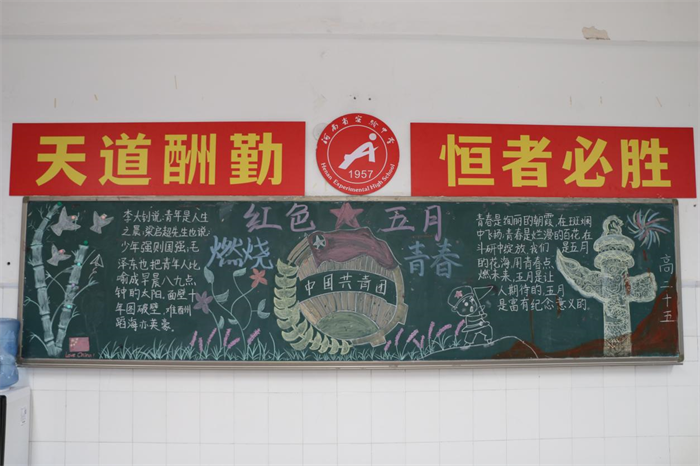 天道酬勤
河南省实验中学
1957
Henan Experimental High School
恒者必胜
红色 五月
燃烧 青春
李大钊说,青年是人生
之晨,梁启超先生也说
少年强则国强,毛
泽东也把青年人比
喻成早晨八九点
钟的太阳,面壁十
年图破壁,难酬
蹈海亦英豪.
中国共青团
青春是绚丽的朝霞,在斑斓
中飞扬,青春是烂漫的百花,在
斗妍中绽放,我们 是五月
的花海,用青春点
燃未来,五月是让
人期待的,五月
是富有纪念意义的.
高二十五